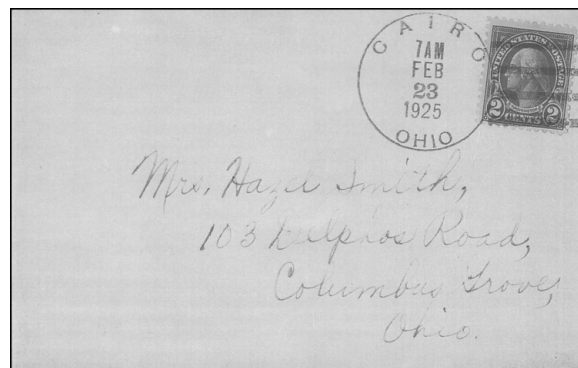 CAIRO
7AM
FEB
23
1925
OHIO
UNITED STATES POSTAGE
2 CENTS 2
Mrs. Hazel Smith,
103 Delphos Road,
Columbus Grove,
Ohio.